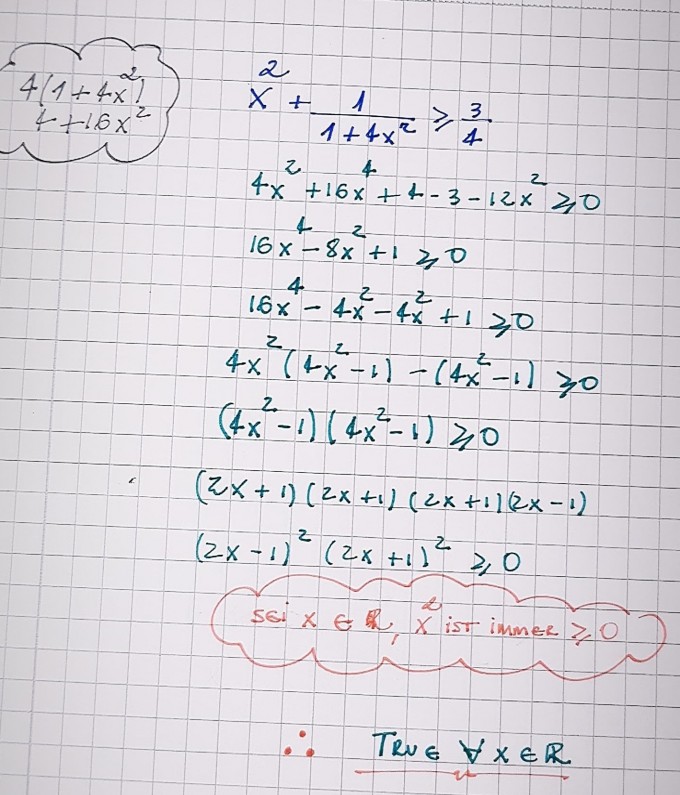 4(1+4x²)
4+16x²
x² + 1/(1+4x²) ≥ 3/4
4x² + 16x⁴ + 4 - 3 - 12x² ≥ 0
16x⁴ - 8x² + 1 ≥ 0
16x⁴ - 4x² - 4x² + 1 ≥ 0
4x² (4x² - 1) - (4x² - 1) ≥ 0
(4x² - 1)(4x² - 1) ≥ 0
(2x + 1)(2x + 1)(2x + 1)(2x - 1)
(2x - 1)² (2x + 1)² ≥ 0
sei x ∈ ℝ, x² ist immer ≥ 0
∴ TRUE ∀ x ∈ ℝ